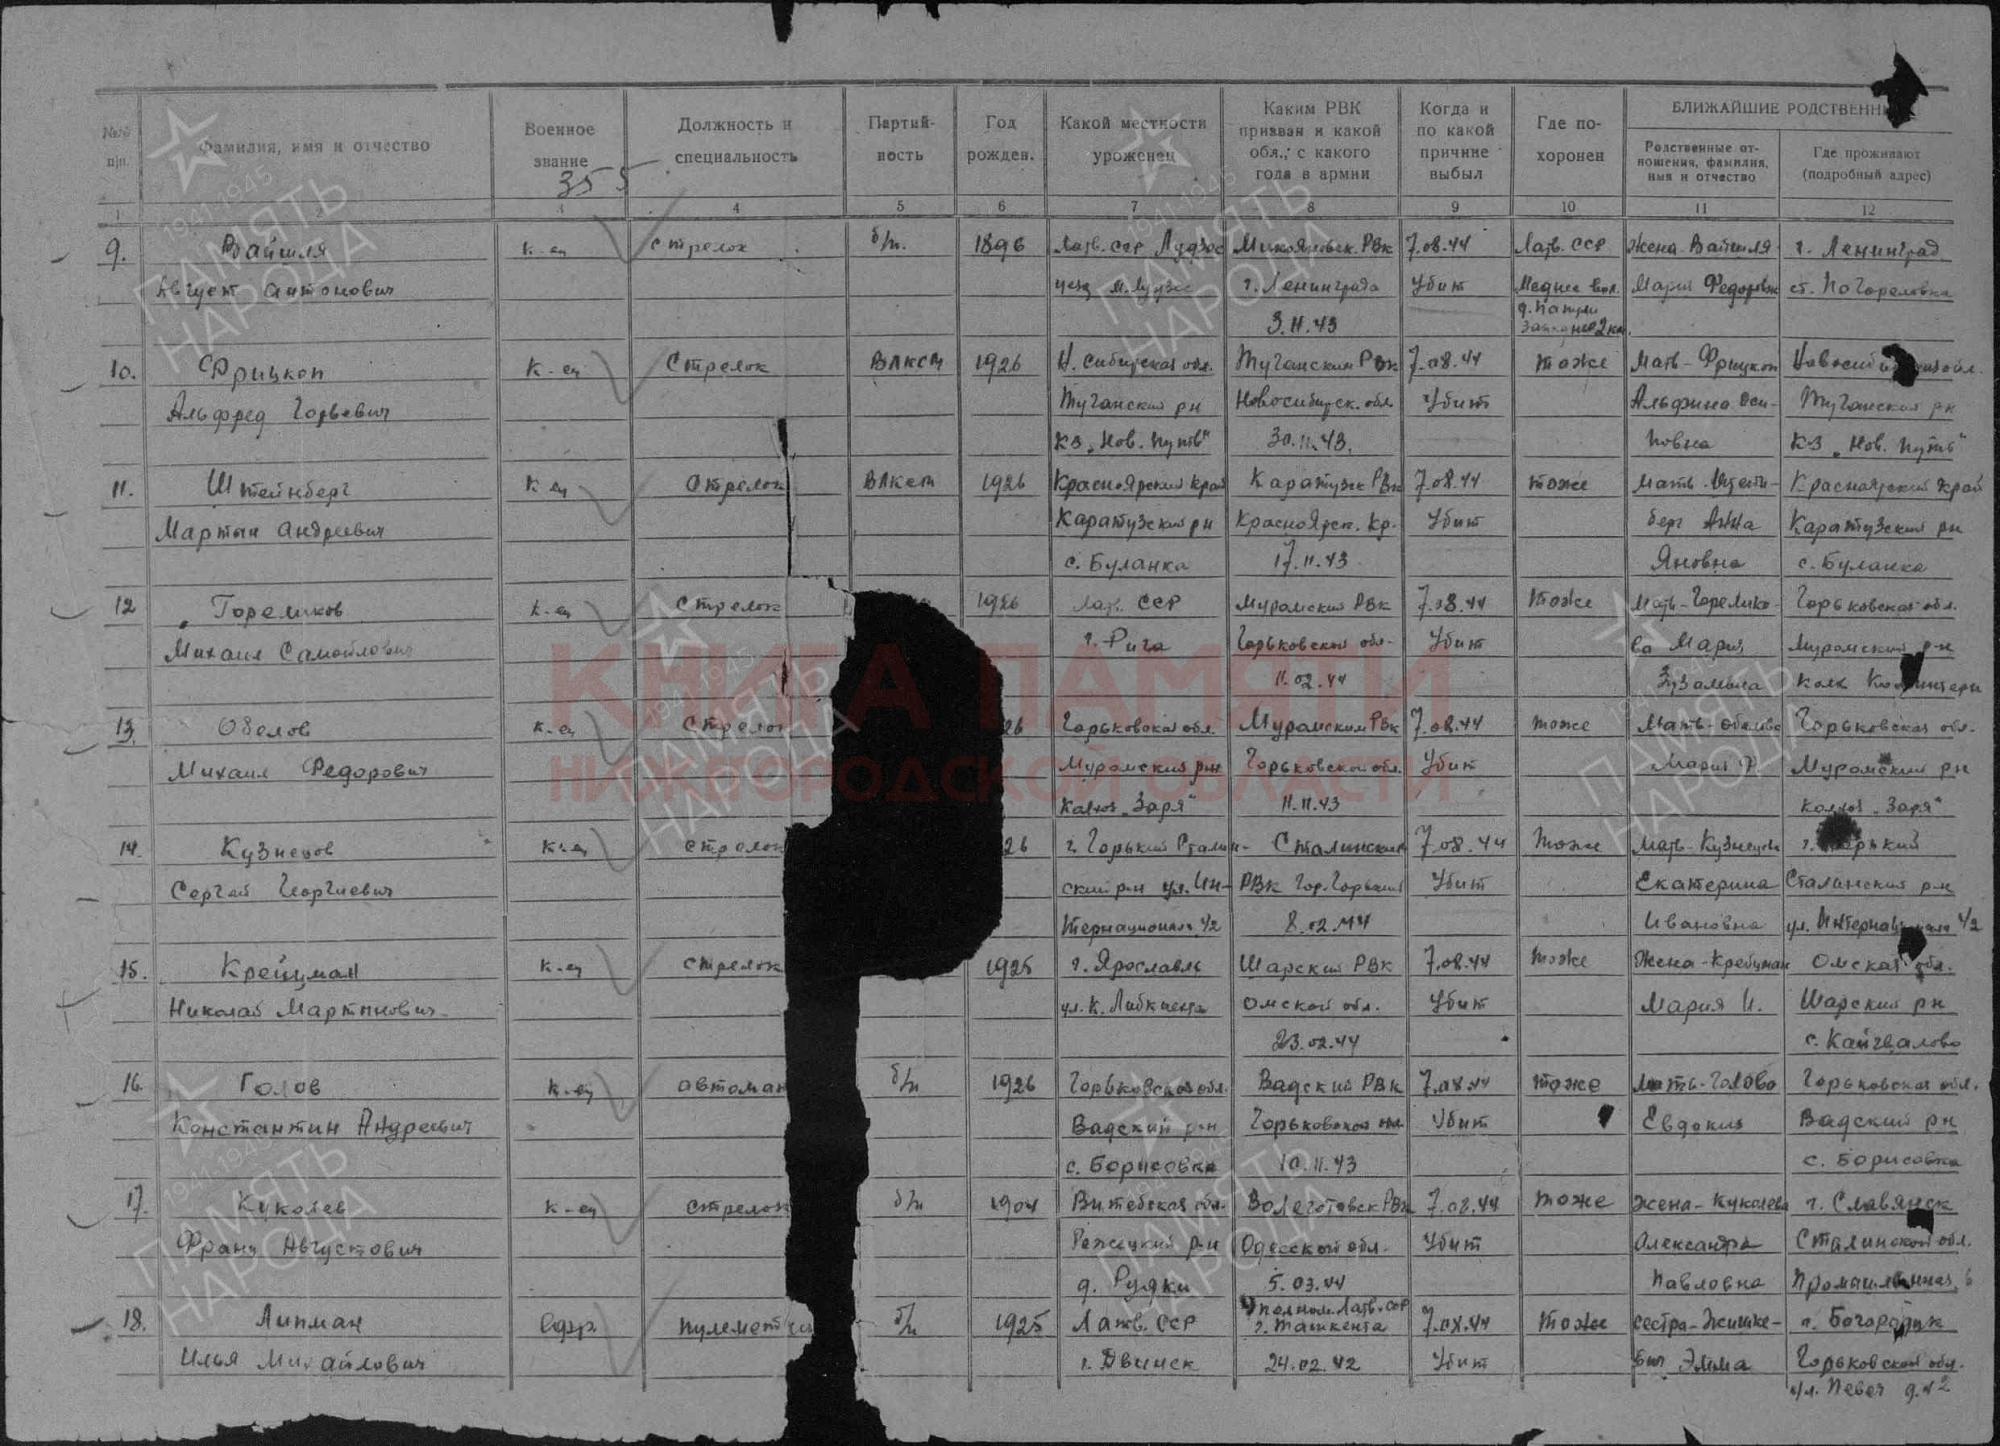 №№ п/п.
Фамилия, имя и отчество
Военное звание
355
Должность и специальность
Партий-ность
Год рожден.
Какой местности уроженец
Каким РВК призван и какой обл., с какого года в армии
Когда и по какой причине выбыл
Где по-хоронен
БЛИЖАЙШИЕ РОДСТВЕНН
Родственные от-ношения, фамилия, имя и отчество
Где проживают (подробный адрес)
1 2 3 4 5 6 7 8 9 10 11 12
9. Вайшля к-ец стрелок б/п. 1896 Латв. ССР Лудзос Микояновск. РВК 7.08.44 Латв. ССР Жена-Вайшля г. Ленинград
Август Антонович уезд м. Лудзос г. Ленинграда Убит Медне вол. Мария Федоровн ст. Погореловка
3.11.43 2км.
10. Фрицкоп к-ец Стрелок ВЛКСМ 1926 Н. Сибирская обл. Туганским РВК 7.08.44 тоже Мать-Фрицкоп
Альфред Горьевич Туганский рн Новосибирск. обл. Убит Альфина Оси- Туганский рн
кз „Нов. Путь" 30.11.43. повна к-з „Нов. путь"
11. Штейнберг к-ец Стрелок ВЛКСМ 1926 Красноярский край Каратузск РВК 7.08.44 тоже мать Красноярский край
Мартын Андреевич Каратузский рн Красноярск. кр. Убит берг Анна Каратузский рн
с. Буланка 17.11.43 Яновна с. Буланка
12 Гореликов к-ец Стрелок 1926 Латв. ССР Муромский РВК 7.08.44 тоже Мать-Горелико- Горьковская обл.
Михаил Самойлович г. Рига Горьковской обл. Убит ва Мария Муромский р-н
11.02.44 колх
13. Обелов к-ец Стрелок 26 Горьковская обл. Муромским РВК 7.08.44 тоже Мать-Обелова Горьковская обл.
Михаил Федорович Муромский рн Горьковской обл. Убит Мария Ф. Муромский рн
Колхоз „Заря" 11.11.43 колхоз „Заря"
14. Кузнецов к-ец стрелок 26 г. Горький Сталин- Сталинским 7.08.44 тоже Мать-Кузнецова г. орький
Сергей Георгиевич ский р-н ул. Ин- РВК Гор. Горький Убит Екатерина Сталинский р-н
тернационал. 4/2 8.02.44 Ивановна ул. 4/2
15. Крейцман к-ец стрелок 1925 г. Ярославль Шарский РВК 7.08.44 тоже Жена-Крейцман Омская обл.
Николай Мартынович ул. К. Либкнехта Омской обл. Убит Мария И. Шарский рн
23.02.44 с. Кайгалово
16. Голов к-ец автоман б/п 1926 Горьковская обл. Вадский РВК 7.08.44 тоже Мать-Голова Горьковская обл.
Константин Андреевич Вадский р-н Горьковской обл. Убит Евдокия Вадский рн
с. Борисовка 10.11.43 с. Борисовка
17. Куколев к-ец стрелок б/п 1904 Витебская обл. 7.08.44 тоже Жена-Куколева г. Славянск
Франц Августович Режецкий р-н Одесской обл. Убит Александра Сталинской обл.
д. Рудки 5.03.44 Павловна
18. Липман Ефр. пулеметчи б/п 1925 Латв. ССР полном. Латв. ССР г. Ташкента 7.08.44 Тоже сестра- г. Богородск
Илья Михайлович г. Двинск 24.02.42 Убит Эмма Горьковской обл.
ул. д. 42
КНИГА ПАМЯТИ
НИЖЕГОРОДСКОЙ ОБЛАСТИ
1941-1945
ПАМЯТЬ
НАРОДА